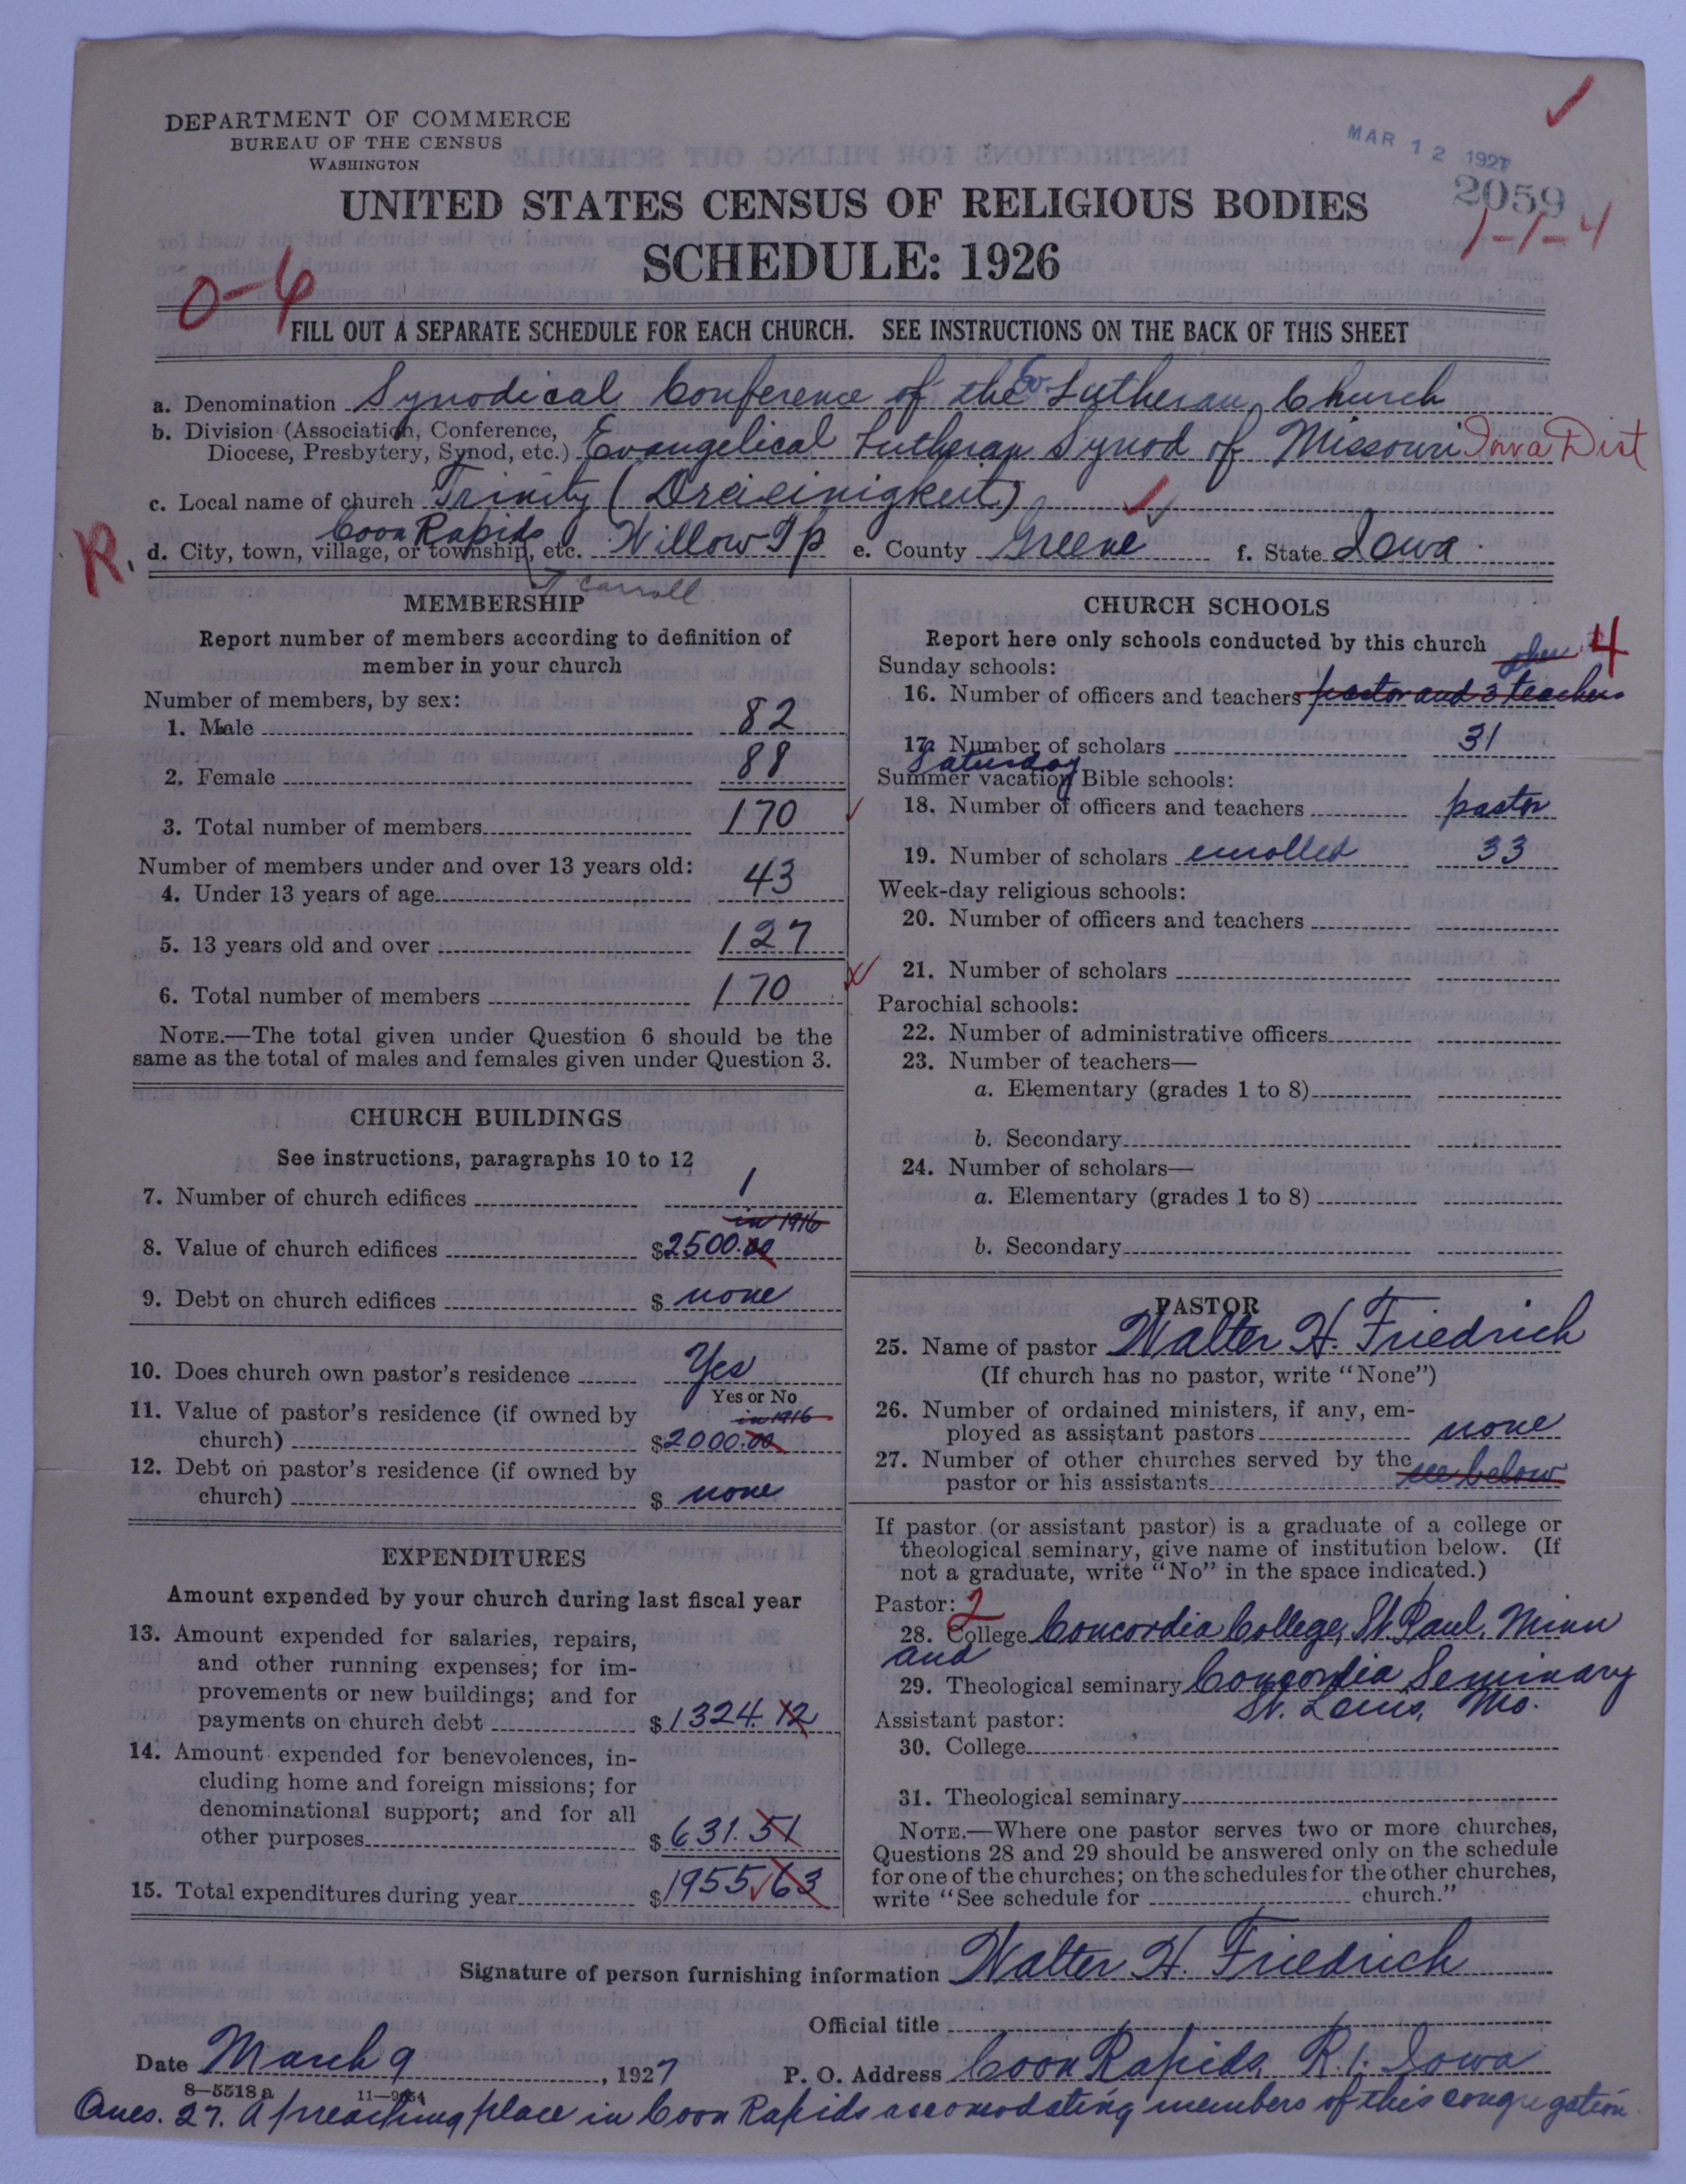 DEPARTMENT OF COMMERCE
BUREAU OF THE CENSUS
WASHINGTON
MAR 12 1927
2059
1-1-4
UNITED STATES CENSUS OF RELIGIOUS BODIES
SCHEDULE: 1926
0-6
FILL OUT A SEPARATE SCHEDULE FOR EACH CHURCH. SEE INSTRUCTIONS ON THE BACK OF THIS SHEET
a. Denomination Synodical Conference of the Ev. Lutheran Church
b. Division (Association, Conference, Diocese, Presbytery, Synod, etc.) Evangelical Lutheran Synod of Missouri Iowa Dist
c. Local name of church Trinity (Dreieinigkeit)
R. d. City, town, village, or township, etc. Coon Rapids Willow Tp e. County Greene f. State Iowa
Carroll
MEMBERSHIP
Report number of members according to definition of
member in your church
Number of members, by sex:
1. Male 82
2. Female 88
3. Total number of members 170
Number of members under and over 13 years old:
4. Under 13 years of age 43
5. 13 years old and over 127
6. Total number of members 170
NOTE.—The total given under Question 6 should be the
same as the total of males and females given under Question 3.
CHURCH BUILDINGS
See instructions, paragraphs 10 to 12
7. Number of church edifices 1
in 1916
8. Value of church edifices $2500.00
9. Debt on church edifices $ none
10. Does church own pastor's residence Yes
Yes or No
11. Value of pastor's residence (if owned by in 1916
church) $2000.00
12. Debt on pastor's residence (if owned by
church) $ none
EXPENDITURES
Amount expended by your church during last fiscal year
13. Amount expended for salaries, repairs,
and other running expenses; for im-
provements or new buildings; and for
payments on church debt $1324.12
14. Amount expended for benevolences, in-
cluding home and foreign missions; for
denominational support; and for all
other purposes $631.51
15. Total expenditures during year $1955.63
CHURCH SCHOOLS
Report here only schools conducted by this church
Sunday schools: 4
16. Number of officers and teachers pastor and 3 teachers
17. Number of scholars 31
Saturday
Summer vacation Bible schools:
18. Number of officers and teachers pastor
19. Number of scholars enrolled 33
Week-day religious schools:
20. Number of officers and teachers
21. Number of scholars
Parochial schools:
22. Number of administrative officers
23. Number of teachers—
a. Elementary (grades 1 to 8)
b. Secondary
24. Number of scholars—
a. Elementary (grades 1 to 8)
b. Secondary
PASTOR
25. Name of pastor Walter H. Friedrich
(If church has no pastor, write "None")
26. Number of ordained ministers, if any, em-
ployed as assistant pastors none
27. Number of other churches served by the
pastor or his assistants see below
If pastor (or assistant pastor) is a graduate of a college or
theological seminary, give name of institution below. (If
not a graduate, write "No" in the space indicated.)
Pastor: 2
28. College Concordia College, St. Paul, Minn
and
29. Theological seminary Concordia Seminary
St. Louis, Mo.
Assistant pastor:
30. College
31. Theological seminary
NOTE.—Where one pastor serves two or more churches,
Questions 28 and 29 should be answered only on the schedule
for one of the churches; on the schedules for the other churches,
write "See schedule for church."
Signature of person furnishing information Walter H. Friedrich
Official title
Date March 9, 1927 P. O. Address Coon Rapids, R.1. Iowa
8-5518a 11-9054
Ques. 27. A preaching place in Coon Rapids accomodating members of this congregation.